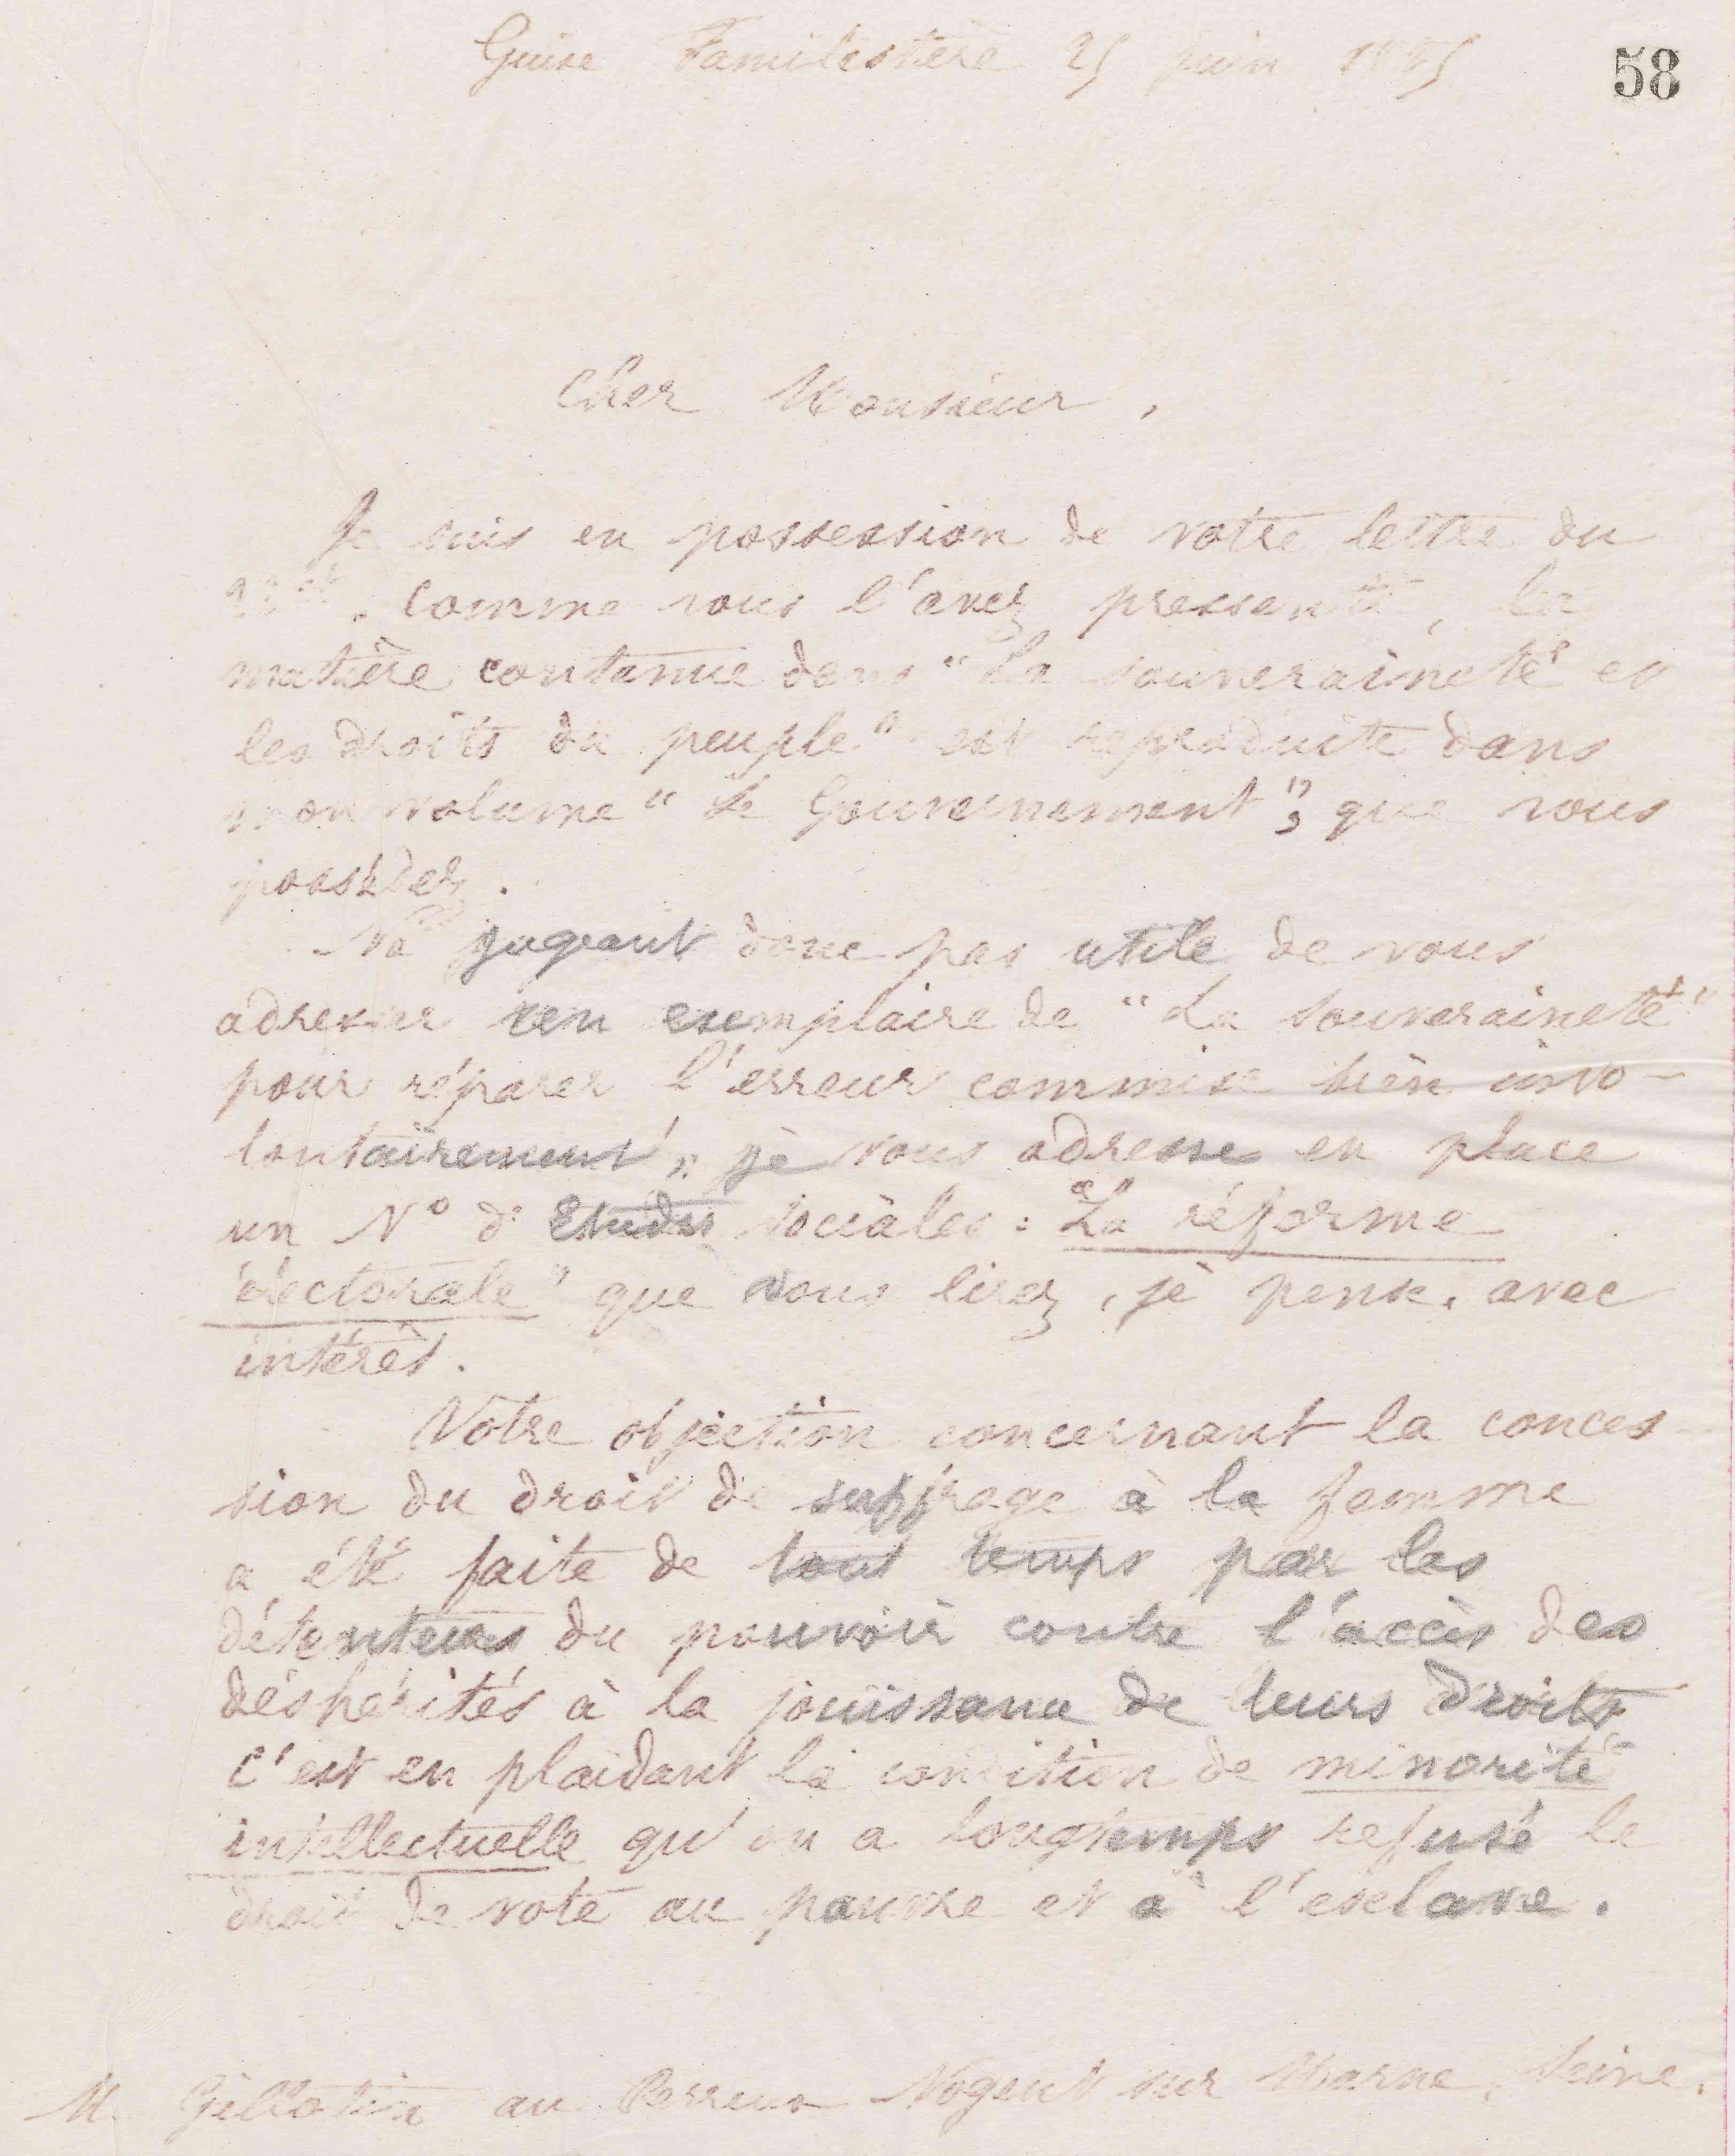 Guise Familistère 25 juin 1885
58
Cher Monsieur,
Je suis en possession de votre lettre du
22 ct. Comme vous l'avez pressenti, la
matière contenue dans "La souveraineté et
les droits du peuple" est reproduite dans
mon volume "Le Gouvernement", que vous
possédez.
Ne jugeant donc pas utile de vous
adresser un exemplaire de "La Souveraineté"
pour réparer l'erreur commise bien invo-
lontairement, je vous adresse en place
un N° d'Etudes sociales : "La réforme
électorale" que vous lirez, je pense, avec
intérêt.
Votre objection concernant la conces
sion du droit de suffrage à la femme
a été faite de tout temps par les
détenteurs du pouvoir contre l'accès des
déshérités à la jouissance de leurs droits
C'est en plaidant la condition de minorité
intellectuelle qu'on a longtemps refusé le
droit de vote au pauvre et à l'esclave.
M. Gillotin au Perreux Nogent sur Marne, Seine.